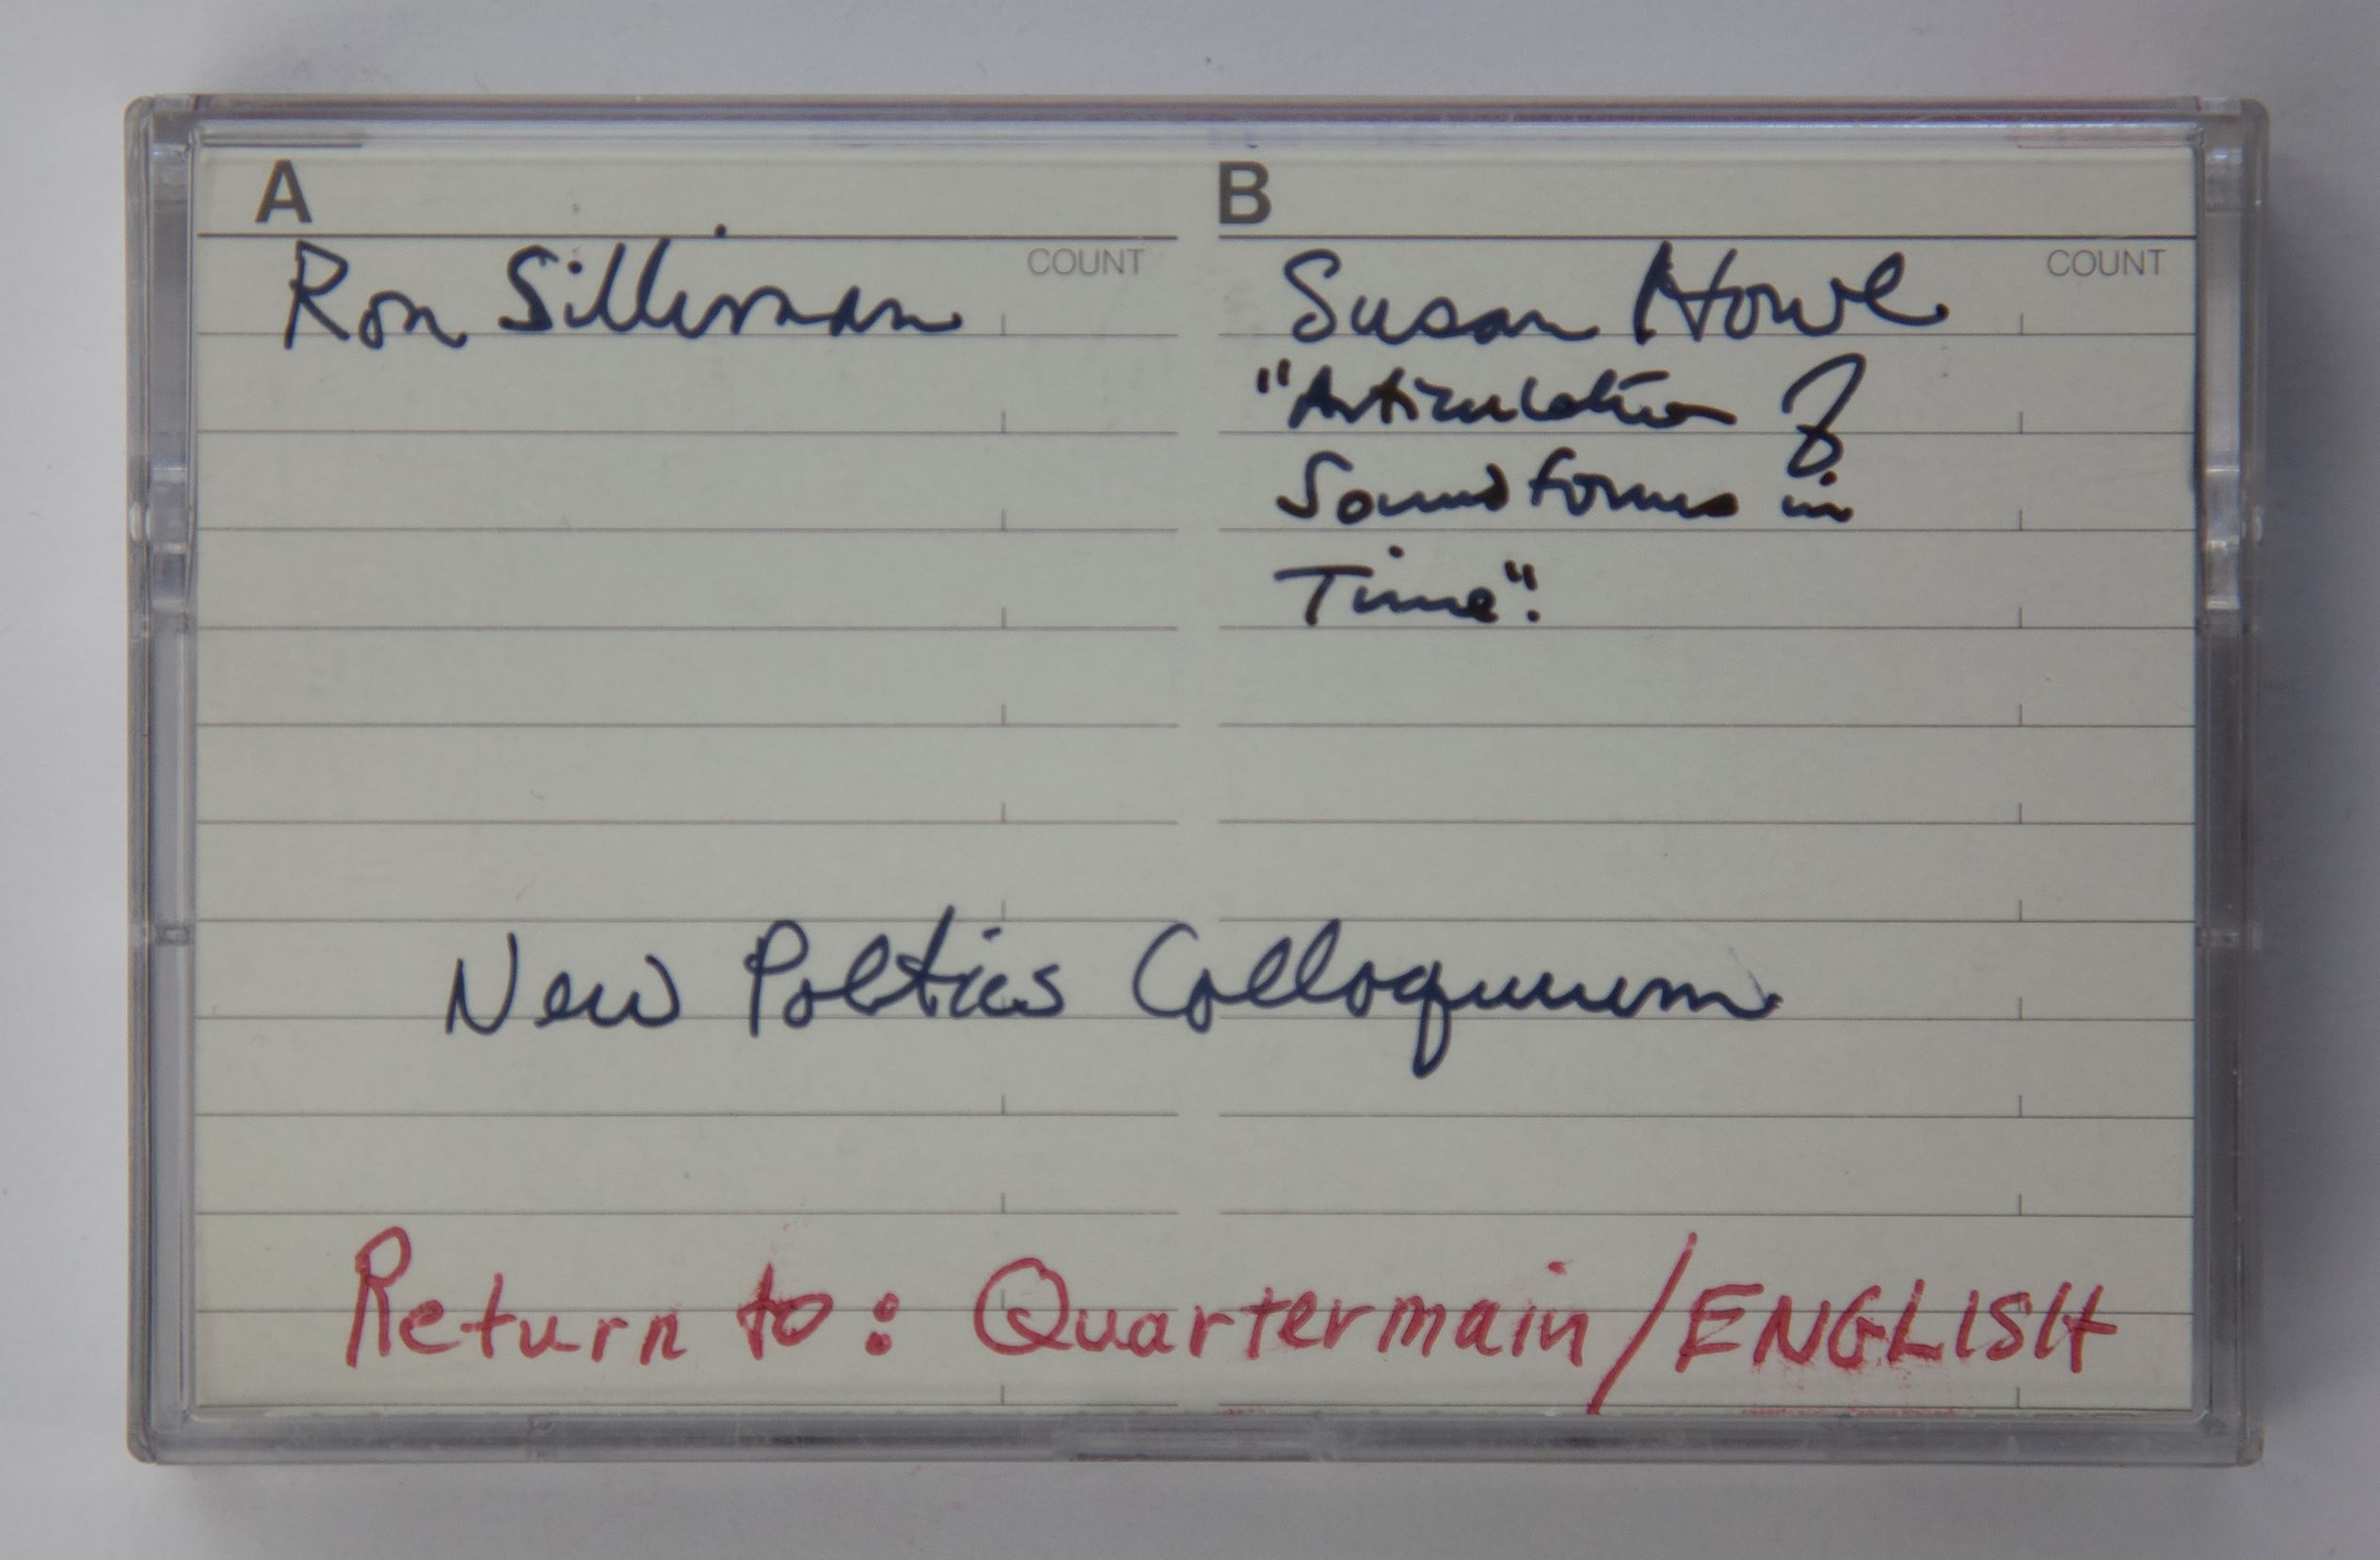 A
COUNT
Ron Silliman
B
COUNT
Susan Howe
"Articulation of
Sound Forms in
Time".
New Poltics Colloquium
Return to: Quartermain/ENGLISH